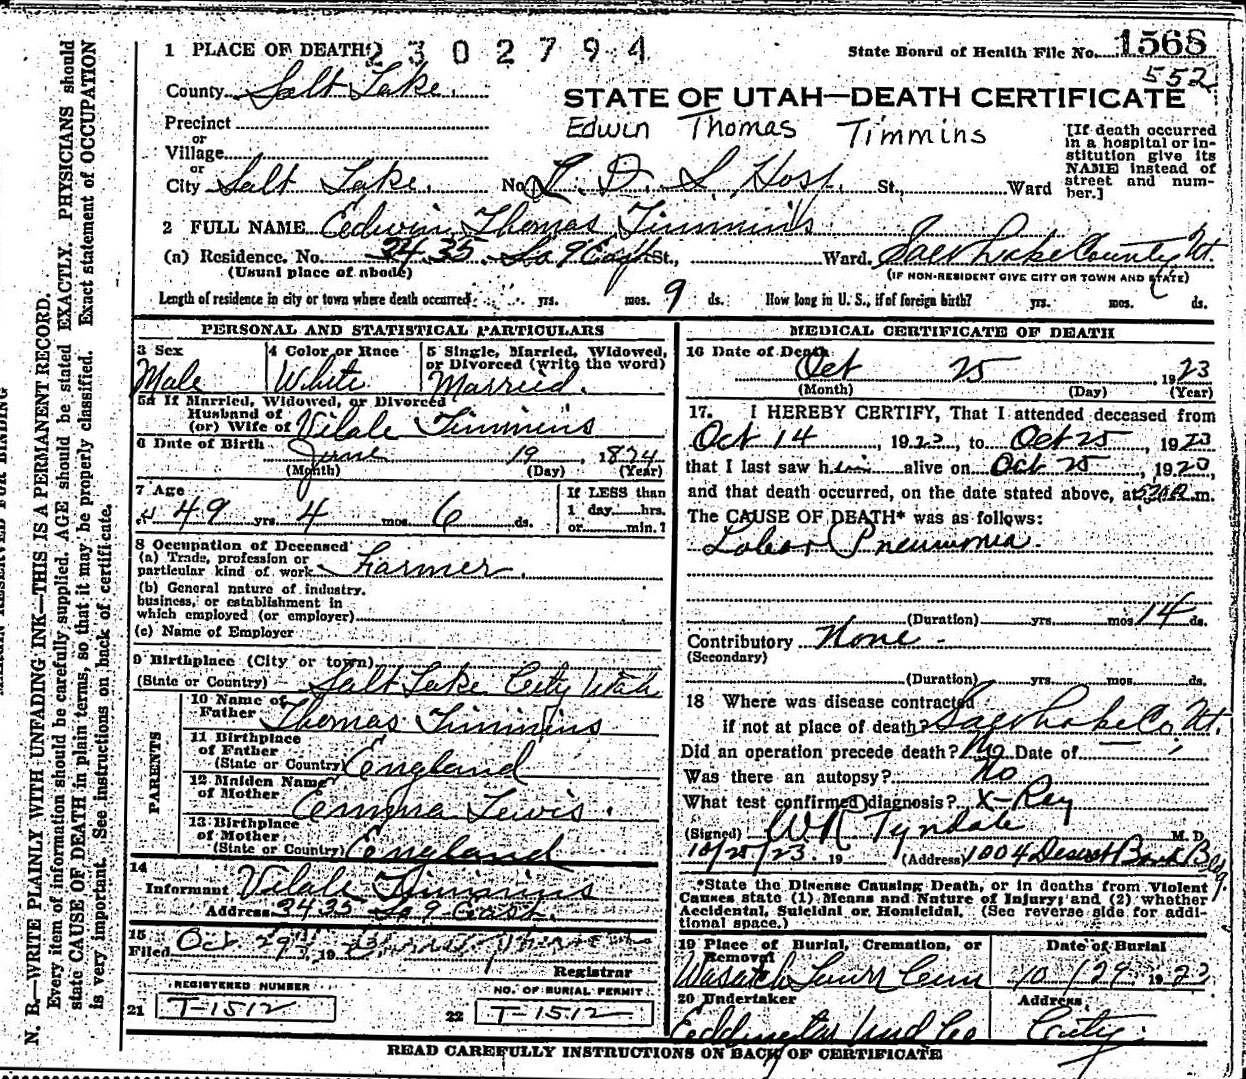 1 PLACE OF DEATH 2302794 State Board of Health File No. 1568
552
County Salt Lake.
STATE OF UTAH—DEATH CERTIFICATE
Precinct
Edwin Thomas Timmins
or
Village
or
City Salt Lake. No. L. D. S Hosp. St., Ward
[If death occurred
in a hospital or in-
stitution give its
NAME instead of
street and num-
ber.]
2 FULL NAME Edwin Thomas Timmins
(a) Residence. No. 3435 So 9 East St., Ward. Salt Lake County Ut.
(Usual place of abode) (IF NON-RESIDENT GIVE CITY OR TOWN AND STATE)
Length of residence in city or town where death occurred yrs. mos. 9 ds. How long in U. S., if of foreign birth? yrs. mos. ds.
PERSONAL AND STATISTICAL PARTICULARS
3 Sex 4 Color or Race 5 Single, Married, Widowed,
or Divorced (write the word)
Male White Married.
5a If Married, Widowed, or Divorced
Husband of
(or) Wife of Vilale Timmins
6 Date of Birth June 19, 1874
(Month) (Day) (Year)
7 Age If LESS than
49 yrs. 4 mos. 6 ds. 1 day hrs.
or min.?
8 Occupation of Deceased
(a) Trade, profession or
particular kind of work Farmer.
(b) General nature of industry,
business, or establishment in
which employed (or employer)
(c) Name of Employer
9 Birthplace (City or town)
(State or Country) Salt Lake City Utah
PARENTS
10 Name of
Father Thomas Timmins
11 Birthplace
of Father
(State or Country) England
12 Maiden Name
of Mother Emma Lewis.
13 Birthplace
of Mother
(State or Country) England
14
Informant Vilale Timmins
Address 3435 So 9 East.
15
Filed Oct. 29, 1923
Registrar
REGISTERED NUMBER NO. OF BURIAL PERMIT
21 T-1512 22 T-1512
MEDICAL CERTIFICATE OF DEATH
16 Date of Death
Oct 25, 1923
(Month) (Day) (Year)
17. I HEREBY CERTIFY, That I attended deceased from
Oct 14, 1923, to Oct 25, 1923
that I last saw him alive on Oct 25, 1923,
and that death occurred, on the date stated above, at m.
The CAUSE OF DEATH* was as follows:
Lobar Pneumonia.
(Duration) yrs. mos. 14 ds.
Contributory None.
(Secondary)
(Duration) yrs. mos. ds.
18 Where was disease contracted
if not at place of death? Salt Lake Co. Ut.
Did an operation precede death? No Date of
Was there an autopsy? No
What test confirmed diagnosis? X-Ray
(Signed) W R Tyndale M. D.
10/25/23. 19 (Address) 1004 Deseret Bank Bldg.
*State the Disease Causing Death, or in deaths from Violent
Causes state (1) Means and Nature of Injury; and (2) whether
Accidental, Suicidal or Homicidal. (See reverse side for addi-
tional space.)
19 Place of Burial, Cremation, or Date of Burial
Removal
Wasatch Lawn Cem 10/29 1923
20 Undertaker Address
Eddington Und Co City.
READ CAREFULLY INSTRUCTIONS ON BACK OF CERTIFICATE
N. B.—WRITE PLAINLY WITH UNFADING INK—THIS IS A PERMANENT RECORD.
Every item of information should be carefully supplied. AGE should be stated EXACTLY. PHYSICIANS should
state CAUSE OF DEATH in plain terms, so that it may be properly classified. Exact statement of OCCUPATION
is very important. See instructions on back of certificate.
MARGIN RESERVED FOR BINDING